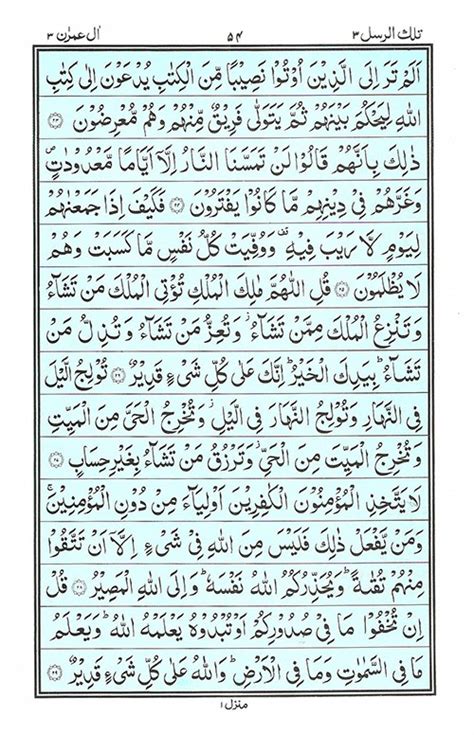 تلك الرسل ٣ ٥٤ اٰل عمرٰن ٣
اَلَمْ تَرَ اِلَى الَّذِيْنَ اُوْتُوْا نَصِيْبًا مِّنَ الْكِتٰبِ يُدْعَوْنَ اِلٰى كِتٰبِ
اللّٰهِ لِيَحْكُمَ بَيْنَهُمْ ثُمَّ يَتَوَلّٰى فَرِيْقٌ مِّنْهُمْ وَهُمْ مُّعْرِضُوْنَ ۝٢٣
ذٰلِكَ بِاَنَّهُمْ قَالُوْا لَنْ تَمَسَّنَا النَّارُ اِلَّاۤ اَيَّامًا مَّعْدُوْدٰتٍ ۪
وَغَرَّهُمْ فِيْ دِيْنِهِمْ مَّا كَانُوْا يَفْتَرُوْنَ ۝٢٤ فَكَيْفَ اِذَا جَمَعْنٰهُمْ
لِيَوْمٍ لَّا رَيْبَ فِيْهِ ۫ وَوُفِّيَتْ كُلُّ نَفْسٍ مَّا كَسَبَتْ وَهُمْ
لَا يُظْلَمُوْنَ ۝٢٥ قُلِ اللّٰهُمَّ مٰلِكَ الْمُلْكِ تُؤْتِي الْمُلْكَ مَنْ تَشَآءُ
وَتَنْزِعُ الْمُلْكَ مِمَّنْ تَشَآءُ ؗ وَتُعِزُّ مَنْ تَشَآءُ وَتُذِلُّ مَنْ
تَشَآءُ ؕ بِيَدِكَ الْخَيْرُ ؕ اِنَّكَ عَلٰى كُلِّ شَيْءٍ قَدِيْرٌ ۝٢٦ تُوْلِجُ الَّيْلَ
فِي النَّهَارِ وَتُوْلِجُ النَّهَارَ فِي الَّيْلِ ؗ وَتُخْرِجُ الْحَيَّ مِنَ الْمَيِّتِ
وَتُخْرِجُ الْمَيِّتَ مِنَ الْحَيِّ ؗ وَتَرْزُقُ مَنْ تَشَآءُ بِغَيْرِ حِسَابٍ ۝٢٧
لَا يَتَّخِذِ الْمُؤْمِنُوْنَ الْكٰفِرِيْنَ اَوْلِيَآءَ مِنْ دُوْنِ الْمُؤْمِنِيْنَ ۚ
وَمَنْ يَّفْعَلْ ذٰلِكَ فَلَيْسَ مِنَ اللّٰهِ فِيْ شَيْءٍ اِلَّاۤ اَنْ تَتَّقُوْا
مِنْهُمْ تُقٰىةً ؕ وَيُحَذِّرُكُمُ اللّٰهُ نَفْسَهٗ ؕ وَاِلَى اللّٰهِ الْمَصِيْرُ ۝٢٨ قُلْ
اِنْ تُخْفُوْا مَا فِيْ صُدُوْرِكُمْ اَوْ تُبْدُوْهُ يَعْلَمْهُ اللّٰهُ ؕ وَيَعْلَمُ
مَا فِي السَّمٰوٰتِ وَمَا فِي الْاَرْضِ ؕ وَاللّٰهُ عَلٰى كُلِّ شَيْءٍ قَدِيْرٌ ۝٢٩
منزل ١